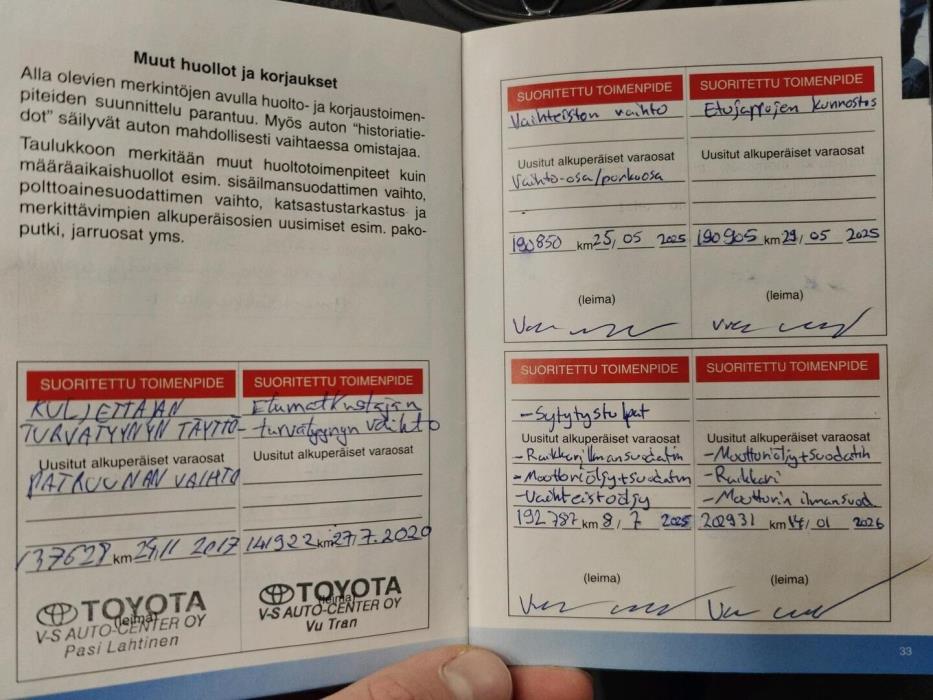 Muut huollot ja korjaukset
Alla olevien merkintöjen avulla huolto- ja korjaustoimen-
piteiden suunnittelu parantuu. Myös auton "historiatie-
dot" säilyvät auton mahdollisesti vaihtaessa omistajaa.
Taulukkoon merkitään muut huoltotoimenpiteet kuin
määräaikaishuollot esim. sisäilmansuodattimen vaihto,
polttoainesuodattimen vaihto, katsastustarkastus ja
merkittävimpien alkuperäisosien uusimiset esim. pako-
putki, jarruosat yms.
SUORITETTU TOIMENPIDE
KULJETTAJAN
TURVATYYNYN TÄYTTÖ-
Uusitut alkuperäiset varaosat
PATRUUNAN VAIHTO
137628 km 29.11 2017
(leima)
TOYOTA
V-S AUTO-CENTER OY
Pasi Lahtinen
SUORITETTU TOIMENPIDE
Etumatkustajan
turvatyynyn vaihto
Uusitut alkuperäiset varaosat
141922 km 27.7.2020
(leima)
TOYOTA
V-S AUTO-CENTER OY
Vu Tran
SUORITETTU TOIMENPIDE
Vaihteiston vaihto
Uusitut alkuperäiset varaosat
Vaihto-osa/purkuosa
190850 km 25/05 2025
(leima)
SUORITETTU TOIMENPIDE
Etujarrujen kunnostus
Uusitut alkuperäiset varaosat
190905 km 29/05 2025
(leima)
SUORITETTU TOIMENPIDE
-Sytytystulpat
Uusitut alkuperäiset varaosat
-Raikkariilmansuodatin
-Moottoriöljy+suodatin
-Vaihteistoöljy
192787 km 8/7 2025
(leima)
SUORITETTU TOIMENPIDE
Uusitut alkuperäiset varaosat
-Moottoriöljy+suodatin
-Raikkari
-Moottorin ilmansuod.
202931 km 14/01 2026
(leima)
33